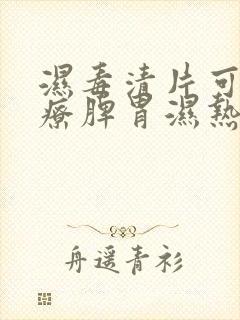 濕毒清片可
療脾胃濕熱
舟遥青衫